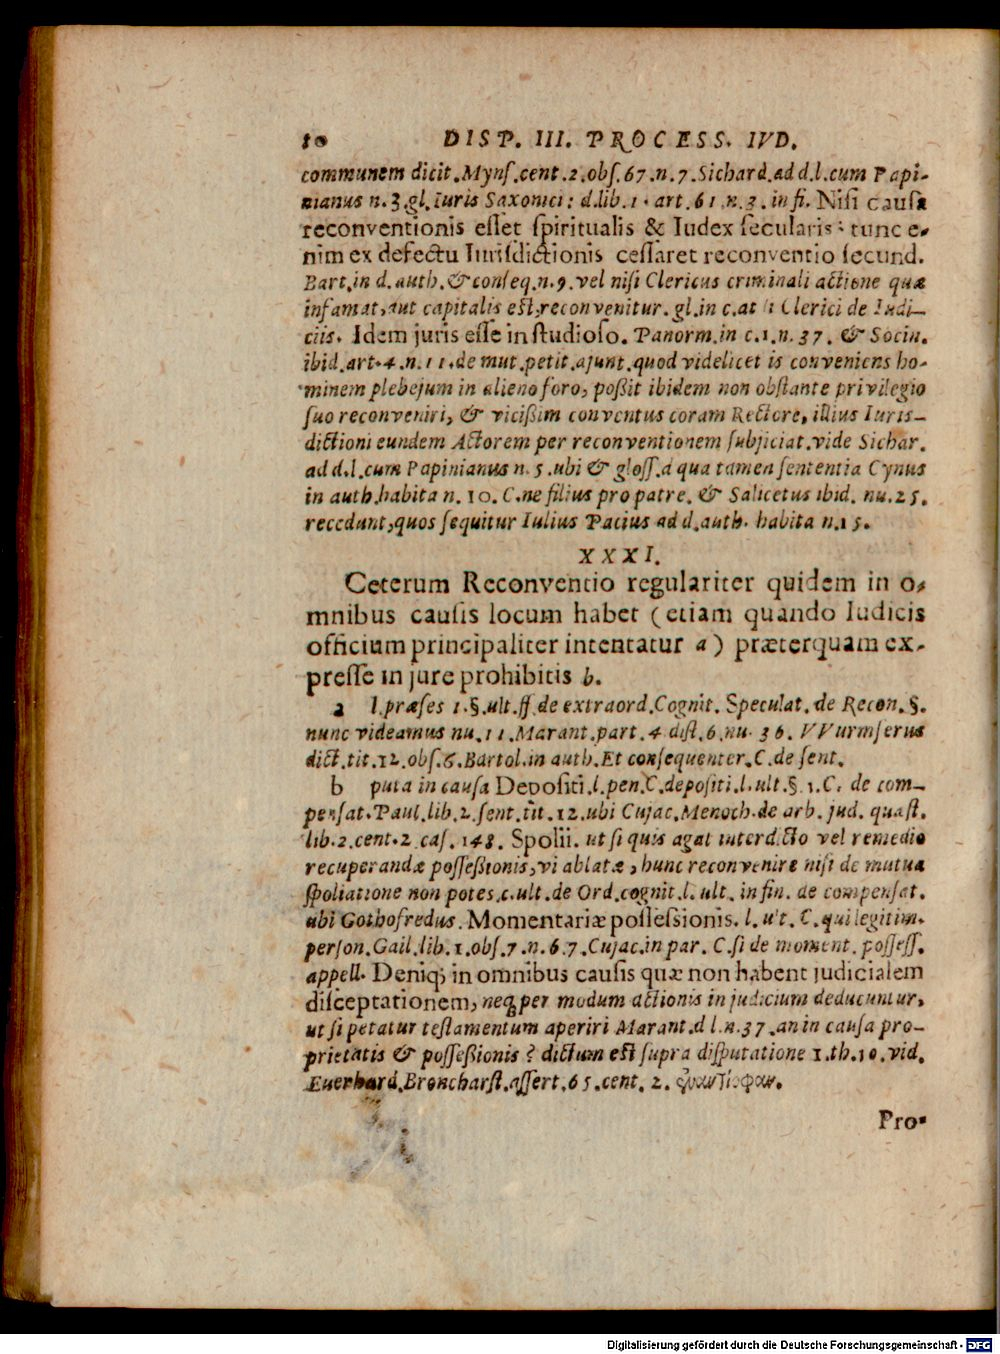 80 DISP. III. PROCESS. IVD.
communem dicit. Mynſ. cent. 2. obſ. 67. n. 7. Sichard. ad d. l. cum Papi-
nianus n. 3. gl. Iuris Saxonici: d. lib. 1. art. 61. n. 3. in fi. Niſi cauſa
reconventionis eſſet ſpiritualis & Iudex ſecularis: tunc e-
nim ex defectu Iuriſdictionis ceſſaret reconventio ſecund.
Bart. in d. auth. & conſeq. n. 9. vel niſi Clericus criminali actione quæ
infamat, aut capitalis eſt, reconvenitur. gl. in c. at ſi Clerici de Iudi-
ciis. Idem juris eſſe in ſtudioſo. Panorm. in c. 1. n. 37. & Socin.
ibid. art. 4. n. 11. de mut. petit. ajunt. quod videlicet is conveniens ho-
minem plebejum in alieno foro, poßit ibidem non obſtante privilegio
ſuo reconveniri, & vicißim conventus coram Rectore, illius Iuris-
dictioni eundem Actorem per reconventionem ſubjiciat. vide Sichar.
ad d. l. cum Papinianus n. 5. ubi & gloſſ. à qua tamen ſententia Cynus
in auth. habita n. 10. C. ne filius pro patre. & Salicetus ibid. nu. 25.
recedunt, quos ſequitur Iulius Pacius ad d. auth. habita n. 15.
XXXI.
Ceterum Reconventio regulariter quidem in o-
mnibus cauſis locum habet (etiam quando Iudicis
officium principaliter intentatur a) præterquam ex-
preſſe in jure prohibitis b.
a l. præſes 1. §. ult. ff. de extraord. Cognit. Speculat. de Recon. §.
nunc videamus nu. 11. Marant. part. 4 diſt. 6. nu. 36. VVurmſerus
dict. tit. 12. obſ. 6. Bartol. in auth. Et conſequenter. C. de ſent.
b puta in cauſa Depoſiti. l. pen. C. depoſiti. l. ult. §. 1. C. de com-
penſat. Paul. lib. 2. ſent. tit. 12. ubi Cujac. Menoch. de arb. jud. quæſt.
lib. 2. cent. 2 caſ. 148. Spolii. ut ſi quis agat interdicto vel remedio
recuperandæ poſſeßionis, vi ablatæ, hunc reconvenire niſi de mutua
ſpoliatione non potes. c. ult. de Ord. cognit. l. ult. in fin. de compenſat.
ubi Gothofredus. Momentariæ poſſeſsionis. l. ult. C. qui legitim.
perſon. Gail. lib. 1. obſ. 7. n. 6. 7. Cujac. in par. C. ſi de moment. poſſeſſ.
appell. Deniq; in omnibus cauſis quæ non habent judicialem
diſceptationem, neq; per modum actionis in judicium deducuntur,
ut ſi petatur teſtamentum aperiri Marant. d l. n. 37. an in cauſa pro-
prietatis & poſſeßionis? dictum eſt ſupra diſputatione 1. th. 10. vid.
Euerhard. Bronchorſt. aſſert. 65. cent. 2.
Pro-
Digitalisierung gefördert durch die Deutsche Forschungsgemeinschaft - DFG